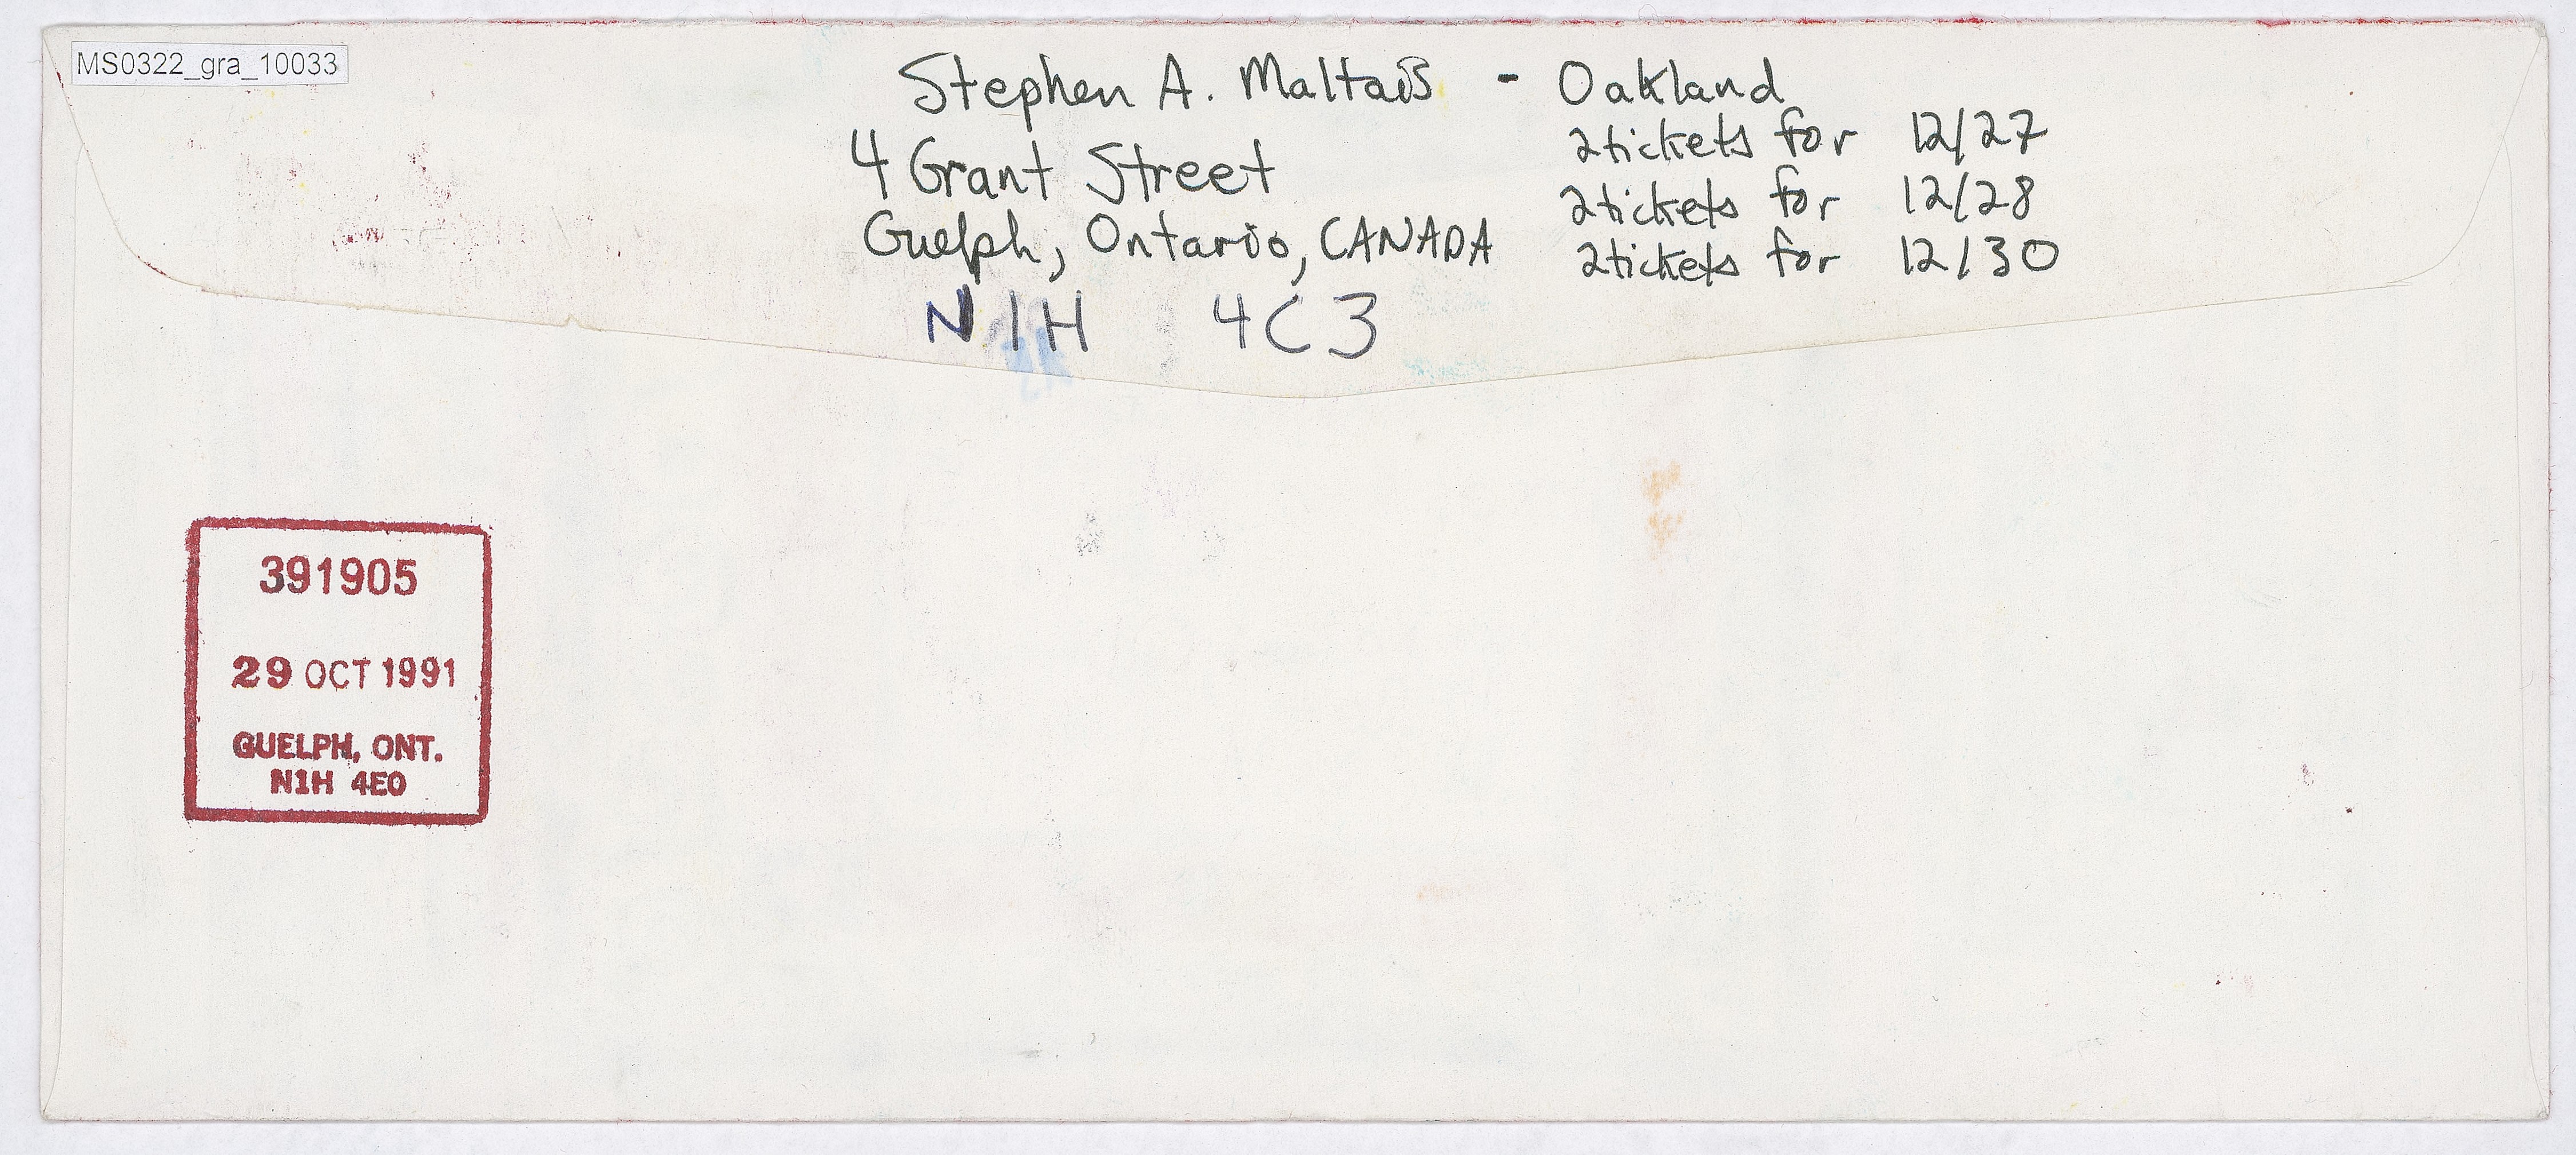 MS0322_gra_10033
Stephen A. Maltais - Oakland
2 tickets for 12/27
4 Grant Street
2 tickets for 12/28
Guelph, Ontario, CANADA
2 tickets for 12/30
N1H 4C3
391905
29 OCT 1991
GUELPH, ONT.
N1H 4E0